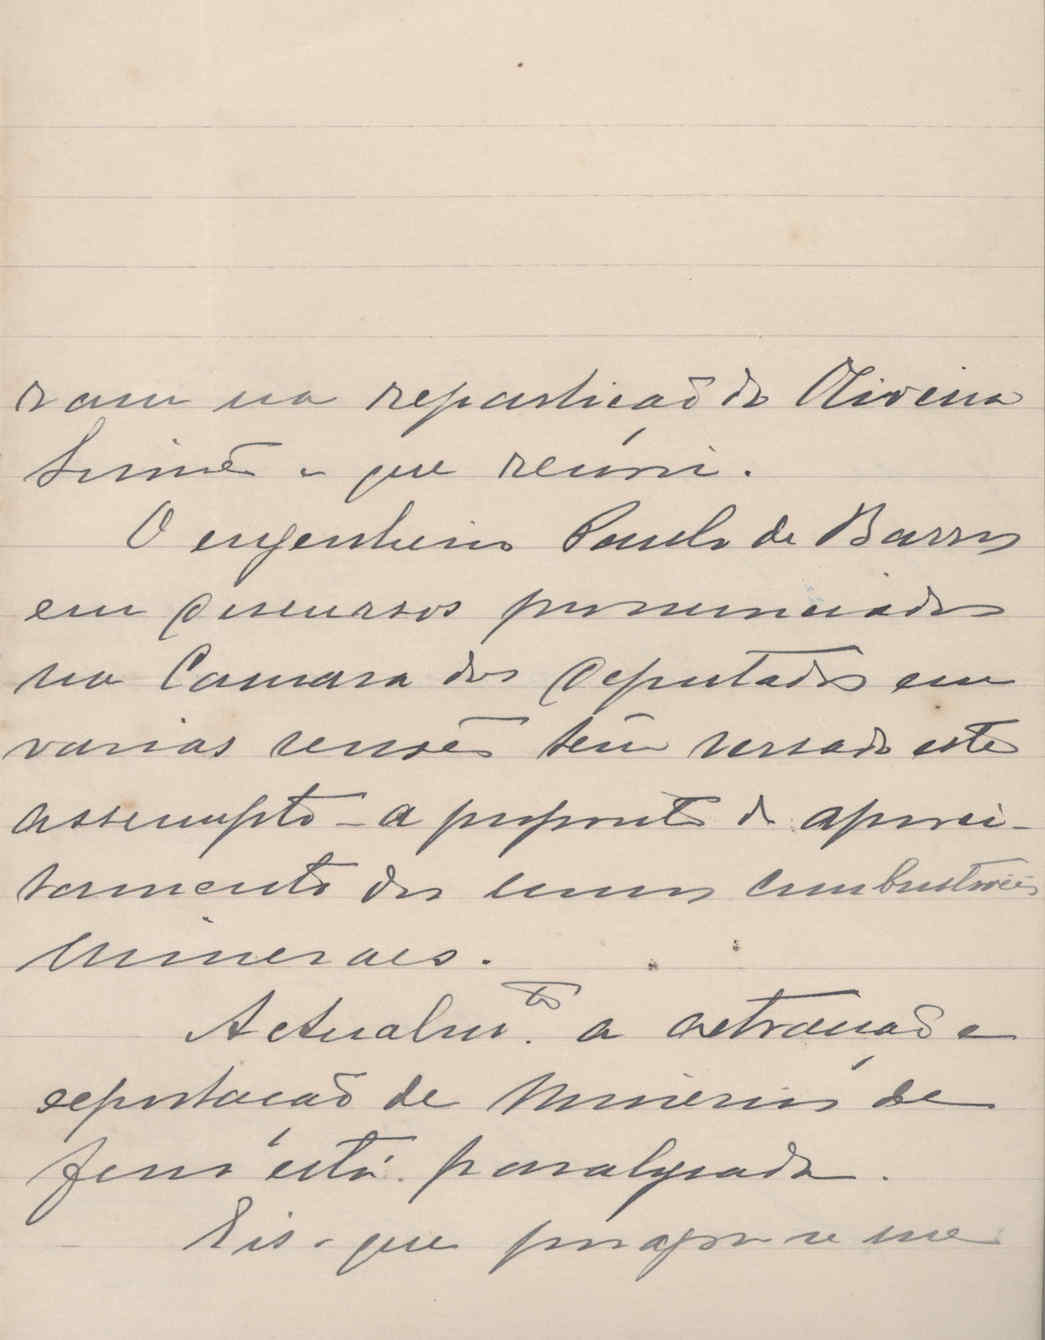 ram na repartição do Oliveira
Simões o que reuni.
O engenheiro Paulo de Barros
em discursos pronunciados
na Camara dos Deputados em
varias sessões têm versado este
assumpto - a proposito do aprovei-
tamento dos combustiveis
mineraes.
Actualm.te a extracção e
exportação de Minerios de
ferro está paralysada.
Eis o que